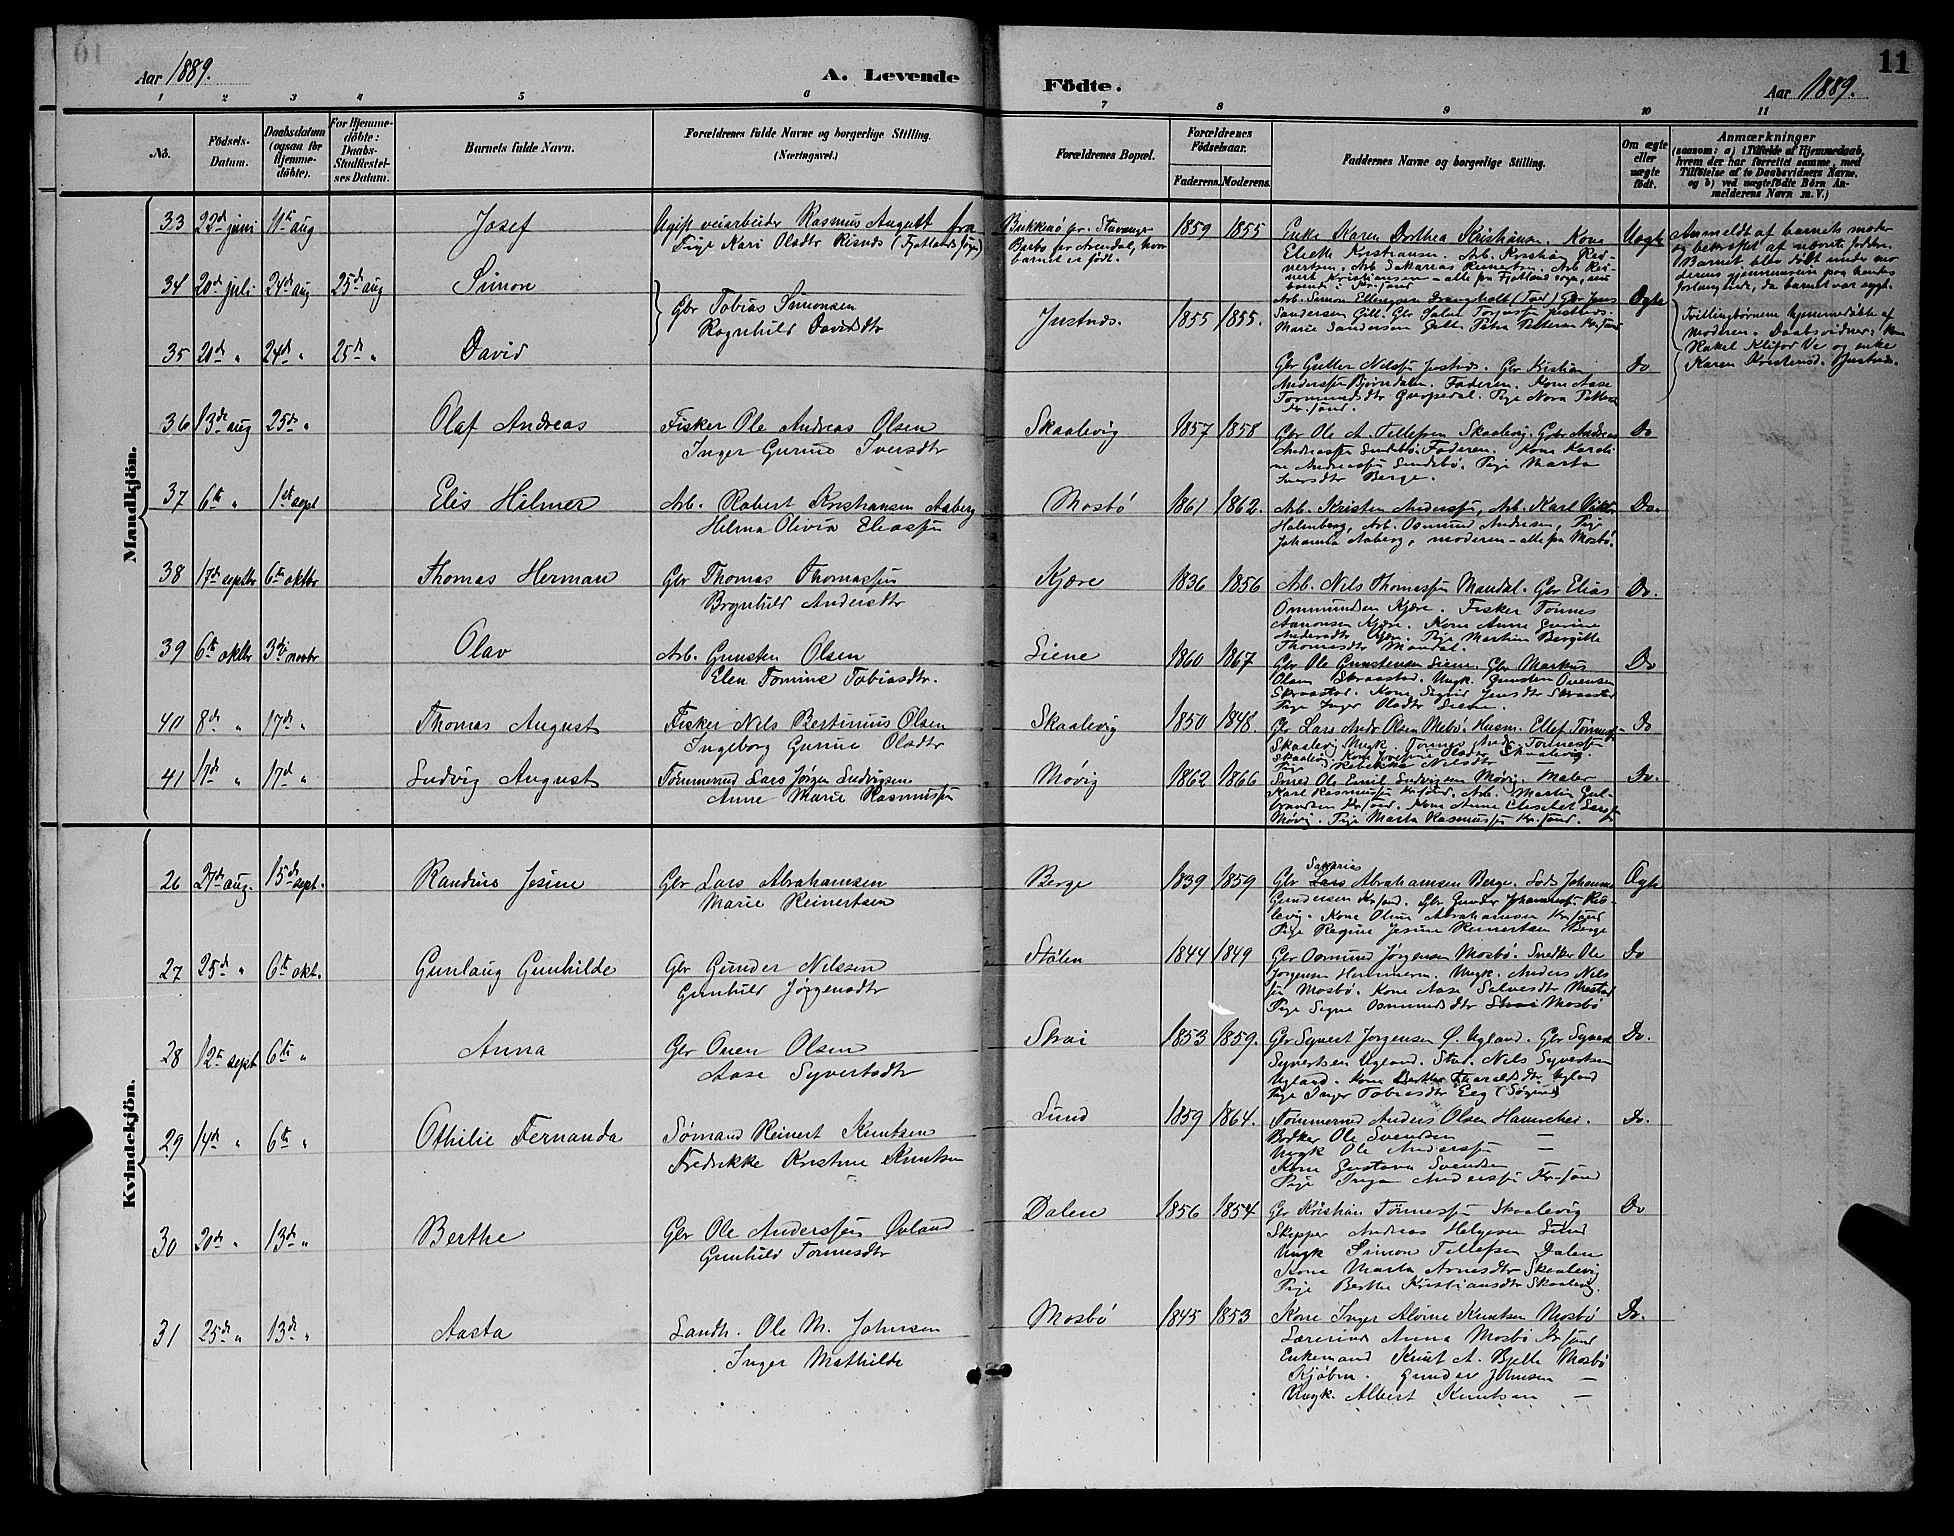 Aar 1889.
A. Levende
Födte.
11
Aar 1889.
1 2 3 4 5 6 7 8 9 10 11
No.
Födsels-
Datum.
Daabsdatum
(ogsaa for
Hjemme-
döbte).
For Hjemme-
döbte:
Daabs-
Stadfæstel-
ses Datum.
Barnets fulde Navn.
Forældrenes fulde Navne og borgerlige Stilling.
(Næringsvei.)
Forældrenes Bopæl.
Forældrenes
Födselsaar.
Faderens. Moderens.
Faddernes Navne og borgerlige Stilling.
Om ægte
eller
uægte
födt.
Anmærkninger
(saasom: a) i Tilfælde af Hjemmedaab,
hvem der har forrettet samme, med
Tilföielse af to Daabsvidners Navne,
og b) ved uægtefödte Börn An-
melderens Navn m. V.)
Mandkjön.
33 23de juni 11te aug Josef
Ugift veiarbeider Rasmus August fra
Pige Kari Olsdtr Risnes (Fjotlands sogn)
Bukkenö pr. Stavanger
Berbo pr Arendal, hvor
barnet er födt.
1859 1855
Enke Karen Dorthea Kristiansen. Kone
Elicke Kristiansen. Arb. Kristian Rei-
nertsen. Arb Sakarias Reinertsen. Arb Rei-
nert Kristiansen – alle fra Fjotland sogn,
boende i Kr.sand
Uægte
Anmeldt af barnets moder
og bekræftet af udvorte fadder.
Barnet blev döbt under mo-
derens gjennemreise paa hendes
forlangende, da barnet var sygt.
34 20de juli 24de aug 25de aug Simon
Gbr Tobias Simonsen
Ragnhild Davidsdtr
Justnes.
1855 1855.
Arb. Simon Ellingsen Drangsholt (Tveit) Gbr Jens
Sandersen Gill. Gbr Salve Torjussen Justnes.
Marie Sandersen Gill. Petra Pettersen Kr.sand
Ægte
Tvillingbörnene hjemmedöbte af
moderen. Daabsvidner: Kone
Rakel Klifor Ve og enke
Karen Kristensd. Justnes.
35 20de " 24de " 25de " David
Gbr Gutter Nilssen Justnes. Gbr Kristian
Anderssen Björndalen. Faderen. Kone Aase
Tormundsdtr Gropedal. Pige Nora Pettersen
Kr.sand.
Do
36 13de aug 25de " Olaf Andreas
Fisker Ole Andreas Olsen
Inger Gurine Iversdtr
Skaalevig 1857 1858
Gbr Ole A. Tellefsen Skaalevig. Gbr Andreas
Andreassen Sundsbö. Faderen. Kone Karoli-
ne Andreassen Sundsbö. Pige Marta
Iversdtr Berge.
Do
37 6te " 1ste sept Elis Hilmer
Arb. Robert Kristiansen Aaberg
Hilma Olivia Eliassen
Mosbö 1861 1862.
Arb. Kristen Anderssen, Arb. Karl Viktor
Holmberg, Arb. Osmund Andersen, Pige
Johanna Aaberg, moderen – alle fra Mosbö.
Do.
38 17de septbr 6te oktbr Thomas Herman
Gbr Thomas Thomassen
Brynhild Andersdtr
Kjære 1836 1856
Arb. Nils Thomassen Mandal. Gbr Elias
Ommundsen Kjære. Fisker Tönnes
Aanonsen Kjære. Kone Anne Gurine
Andersdtr Kjære. Pige Martine Bergitte
Thomasdtr Mandal.
Do.
39 6te oktbr 3die novbr Olav
Arb. Gunsten Olsen
Elen Tomine Tobiasdtr.
Liene 1860 1867
Gbr Ole Gunstensen Liene. Gbr Markus
Olsen Skraastad. Ungk. Gunsten Ovensen
Skraastad. Kone Sigrid Jensdtr Skraastad
Pige Inger Olsdtr Liene.
Do
40 8de " 17de " Thomas August
Fisker Nils Bertinius Olsen
Ingeborg Gurine Olsdtr
Skaalevig 1850 1848.
Gbr Lars Andr Olsen Mebö. Husm. Ellef Tönnessen
Skaalevig Ungk. Tönnes Andr. Tönnessen
Skaalevig. Kone Josefine Olsdtr Skaalevig.
Pige Rebekka Nilsdtr –
Do
41 17de " 17de " Ludvig August
Tömmermd Lars Jörgen Ludvigsen
Anne Marie Rasmussen
Mövig 1862 1866
Smed Ole Emil Ludvigsen Mövig. Maler
Karl Rasmussen Kr.sand. Arb. Martin Gul-
brandsen Kr.sand. Kone Anne Elisabet Larssen
Mövig. Pige Marta Rasmussen Kr.sand.
Do.
Kvindekjön.
26 27de aug. 15de sept. Randine Jesine
Gbr Lars Abrahamsen
Marie Reinertsen
Berge 1839 1859
Sakarias
Gbr Lars Abrahamsen Berge. Lods Johannes
Gundersen Kr.sand. Gbr Gunder Johannessen Kos-
levig. Kone Oline Abrahamsen Kr.sand
Pige Regine Jesine Reinertsen Berge
Ægte
27 25de " 6te okt. Gunlaug Gunhilde
Gbr Gunder Nilssen
Gunhild Jörgensdtr
Stölen 1844 1849
Gbr Osmund Jörgensen Mosbö. Snedker Ole
Jörgensen Hammeren. Ungk. Anders Nils-
sen Mosbö. Kone Aase Salvesdtr Mestad
Pige Signe Osmundsdtr Strai Mosbö
Do
28 12te sept 6te " Anna
Gbr Oven Olsen
Aase Syvertsdtr
Strai 1853 1859.
Gbr Syvert Jörgensen Ö. Ugland. Gbr Syvert
Syvertsen Ugland. Stud. Nils Syvertsen
Ugland. Kone Berthe Tharaldsdtr Ugland
Pige Inger Tobiasdtr Eeg (Sögne)
Do.
29 14de " 6te " Othilie Fernanda
Sömand Reinert Knutsen
Fredrikke Kristine Knutsen
Lund 1859 1864.
Tömmermd Anders Olsen Hamrehei.
Bödker Ole Svendsen –
Ungk Ole Anderssen –
Kone Gustava Svendsen
Pige Inga Anderssen Kr.sand
Do.
30 20de " 13de " Berthe
Gbr Ole Anderssen Övland
Gunhild Tönnesdtr
Dalene 1856 1854
Gbr Kristian Tönnessen Skaalevig
Skipper Andreas Helgesen Lund
Ungk Simon Tellefsen Dalene
Kone Marta Arnesdtr Skaalevig
Pige Berthe Kristiansdtr Skaalevig.
Do
31 25de " 13de " Aasta
Landh. Ole M. Johnsen
Inger Mathilde
Mosbö 1845 1853
Kone Inger Alvine Knutsen Mosbö
Lærerinde Anna Mosbö Kr.sand
Enkemand Knut A. Bjelle Mosbö
Kjöbm. Gunder Johnsen –
Ungk. Albert Knutsen –
Do.